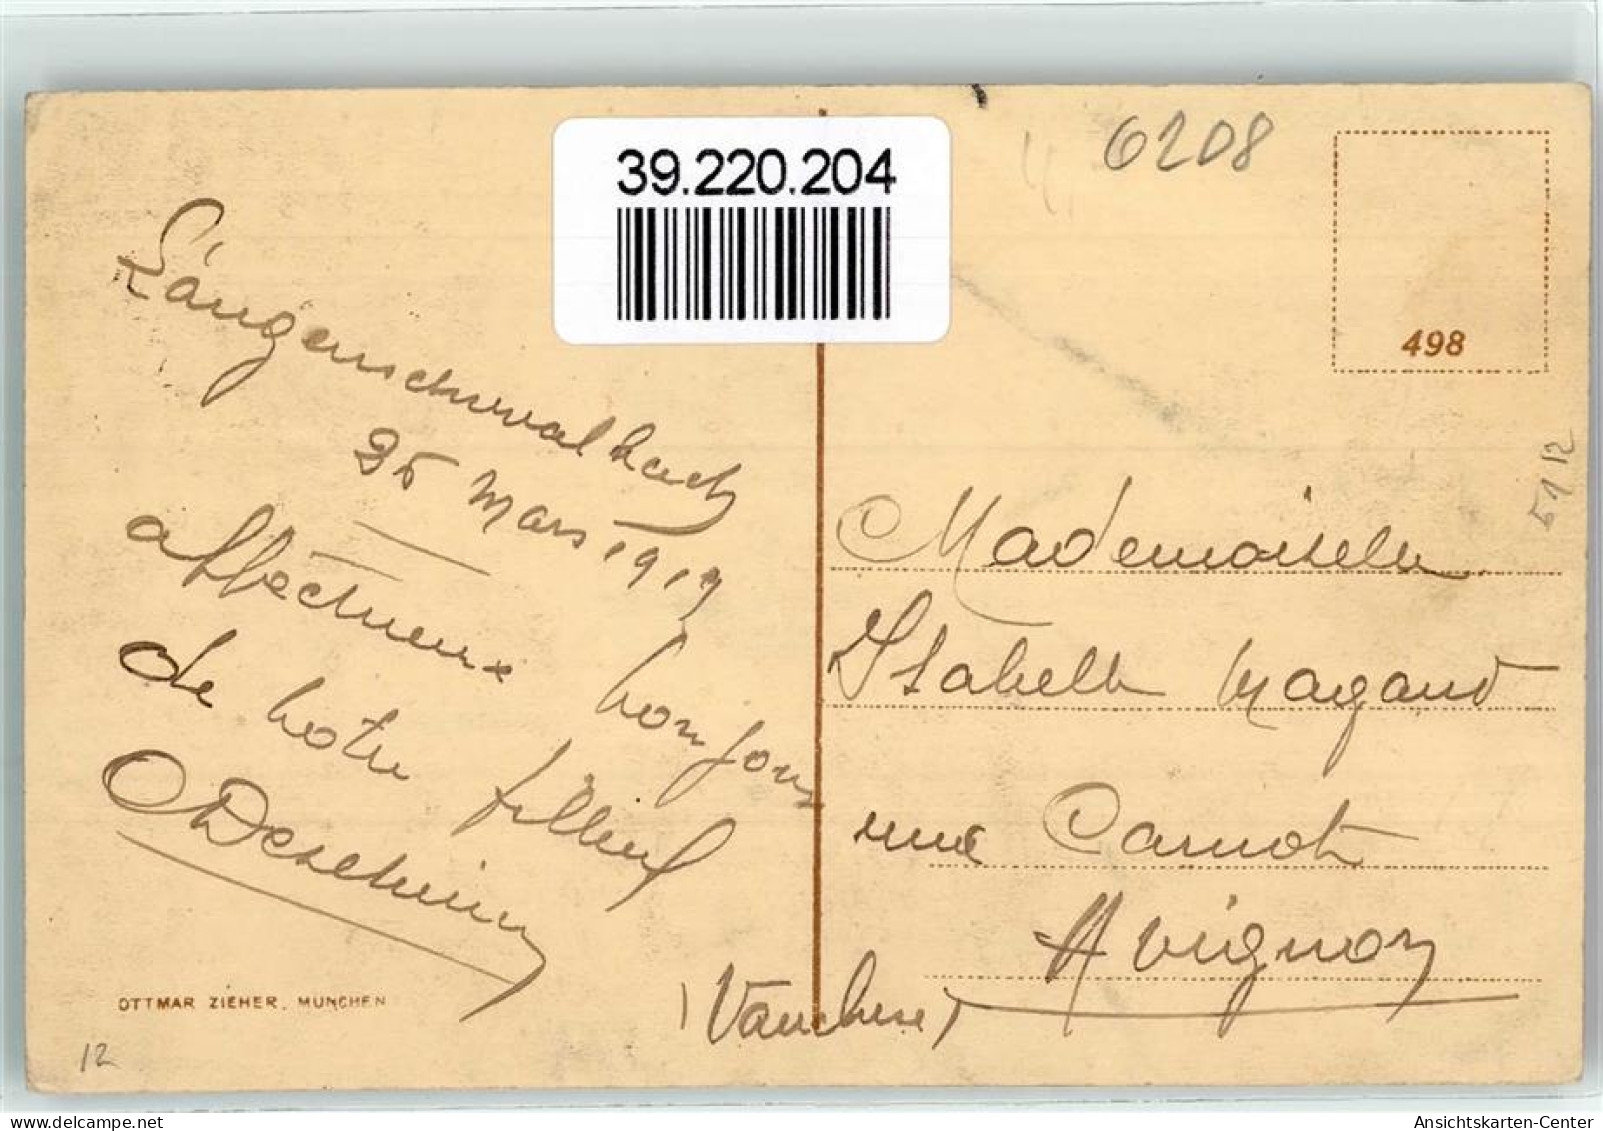 39.220.204
6208
498
5112
Längenschwalbach
26 Mars 1919
affectueux bonjour
de votre filleul
Mademoiselle
Isabelle Magaud
rue Carnot
Avignon
(Vaucluse)
OTTMAR ZIEHER, MÜNCHEN
12
www.delcampe.net
Ansichtskarten-Center